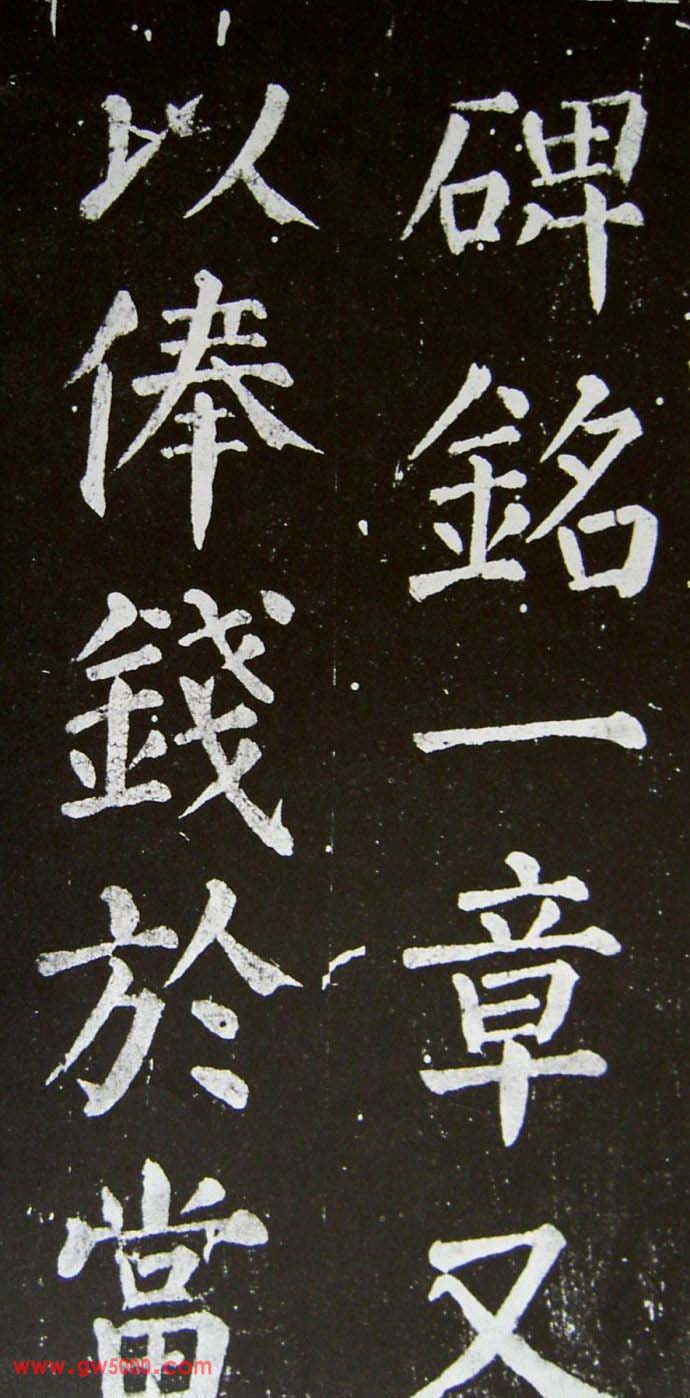 碑銘一章又
以俸錢於當
www.gw5000.com